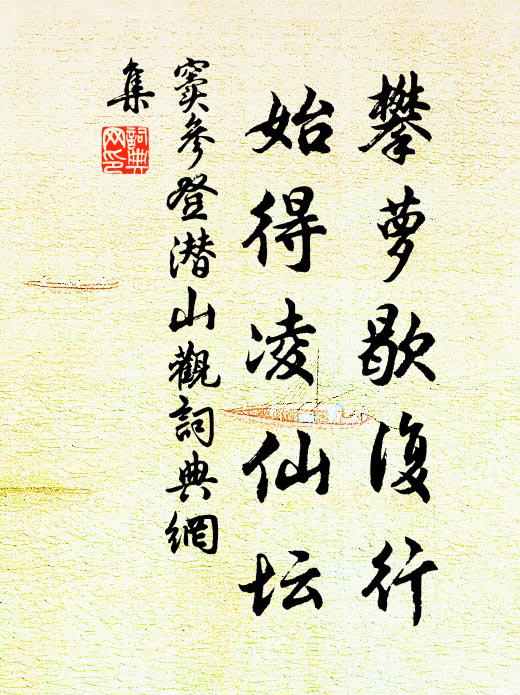 攀萝歇复行
始得凌仙坛
窦参登潜山觀詞典網
集
詞典網印